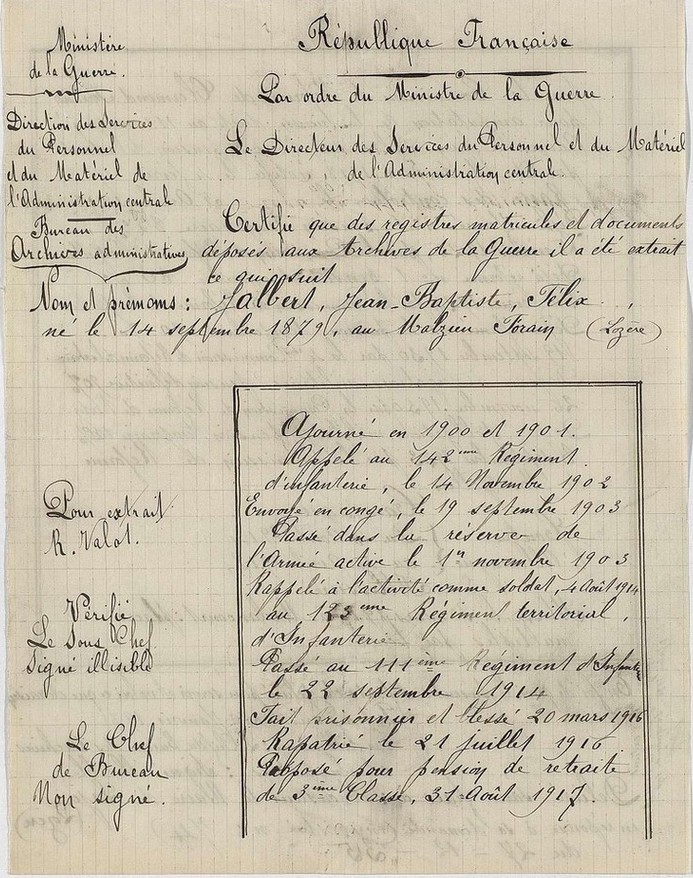 Ministère
de la Guerre.
Direction des Services
du Personnel
et du Matériel de
l'Administration centrale
Bureau des
Archives administratives
République Française
Par ordre du Ministre de la Guerre
Le Directeur des Services du Personnel et du Matériel
de l'Administration centrale
Certifie que des registres matricules et documents
déposés aux Archives de la Guerre il a été extrait
ce qui suit
Nom et prénoms : Jalbert, Jean-Baptiste, Félix.,
né le 14 septembre 1879, au Malzieu Forain (Lozère)
Ajourné en 1900 et 1901.
Appelé au 142ème Regiment
d'infanterie, le 14 Novembre 1902
Envoyé en congé, le 19 septembre 1903
Passé dans la réserve de
l'Armée active le 1er novembre 1903
Rappelé à l'activité comme soldat, 4 Août 1914
au 123ème Régiment territorial,
d'Infanterie
Passé au 111ème Regiment d'Infanterie
le 22 septembre 1914
Fait prisonnier et blessé 20 mars 1916
Rapatrié le 21 juillet 1916
Proposé pour pension de retraite
de 3ème Classe, 31 Août 1917.
Pour extrait
R. Valot.
Vérifié
Le Sous Chef
Signé illisible
Le Chef
de Bureau
Non signé.